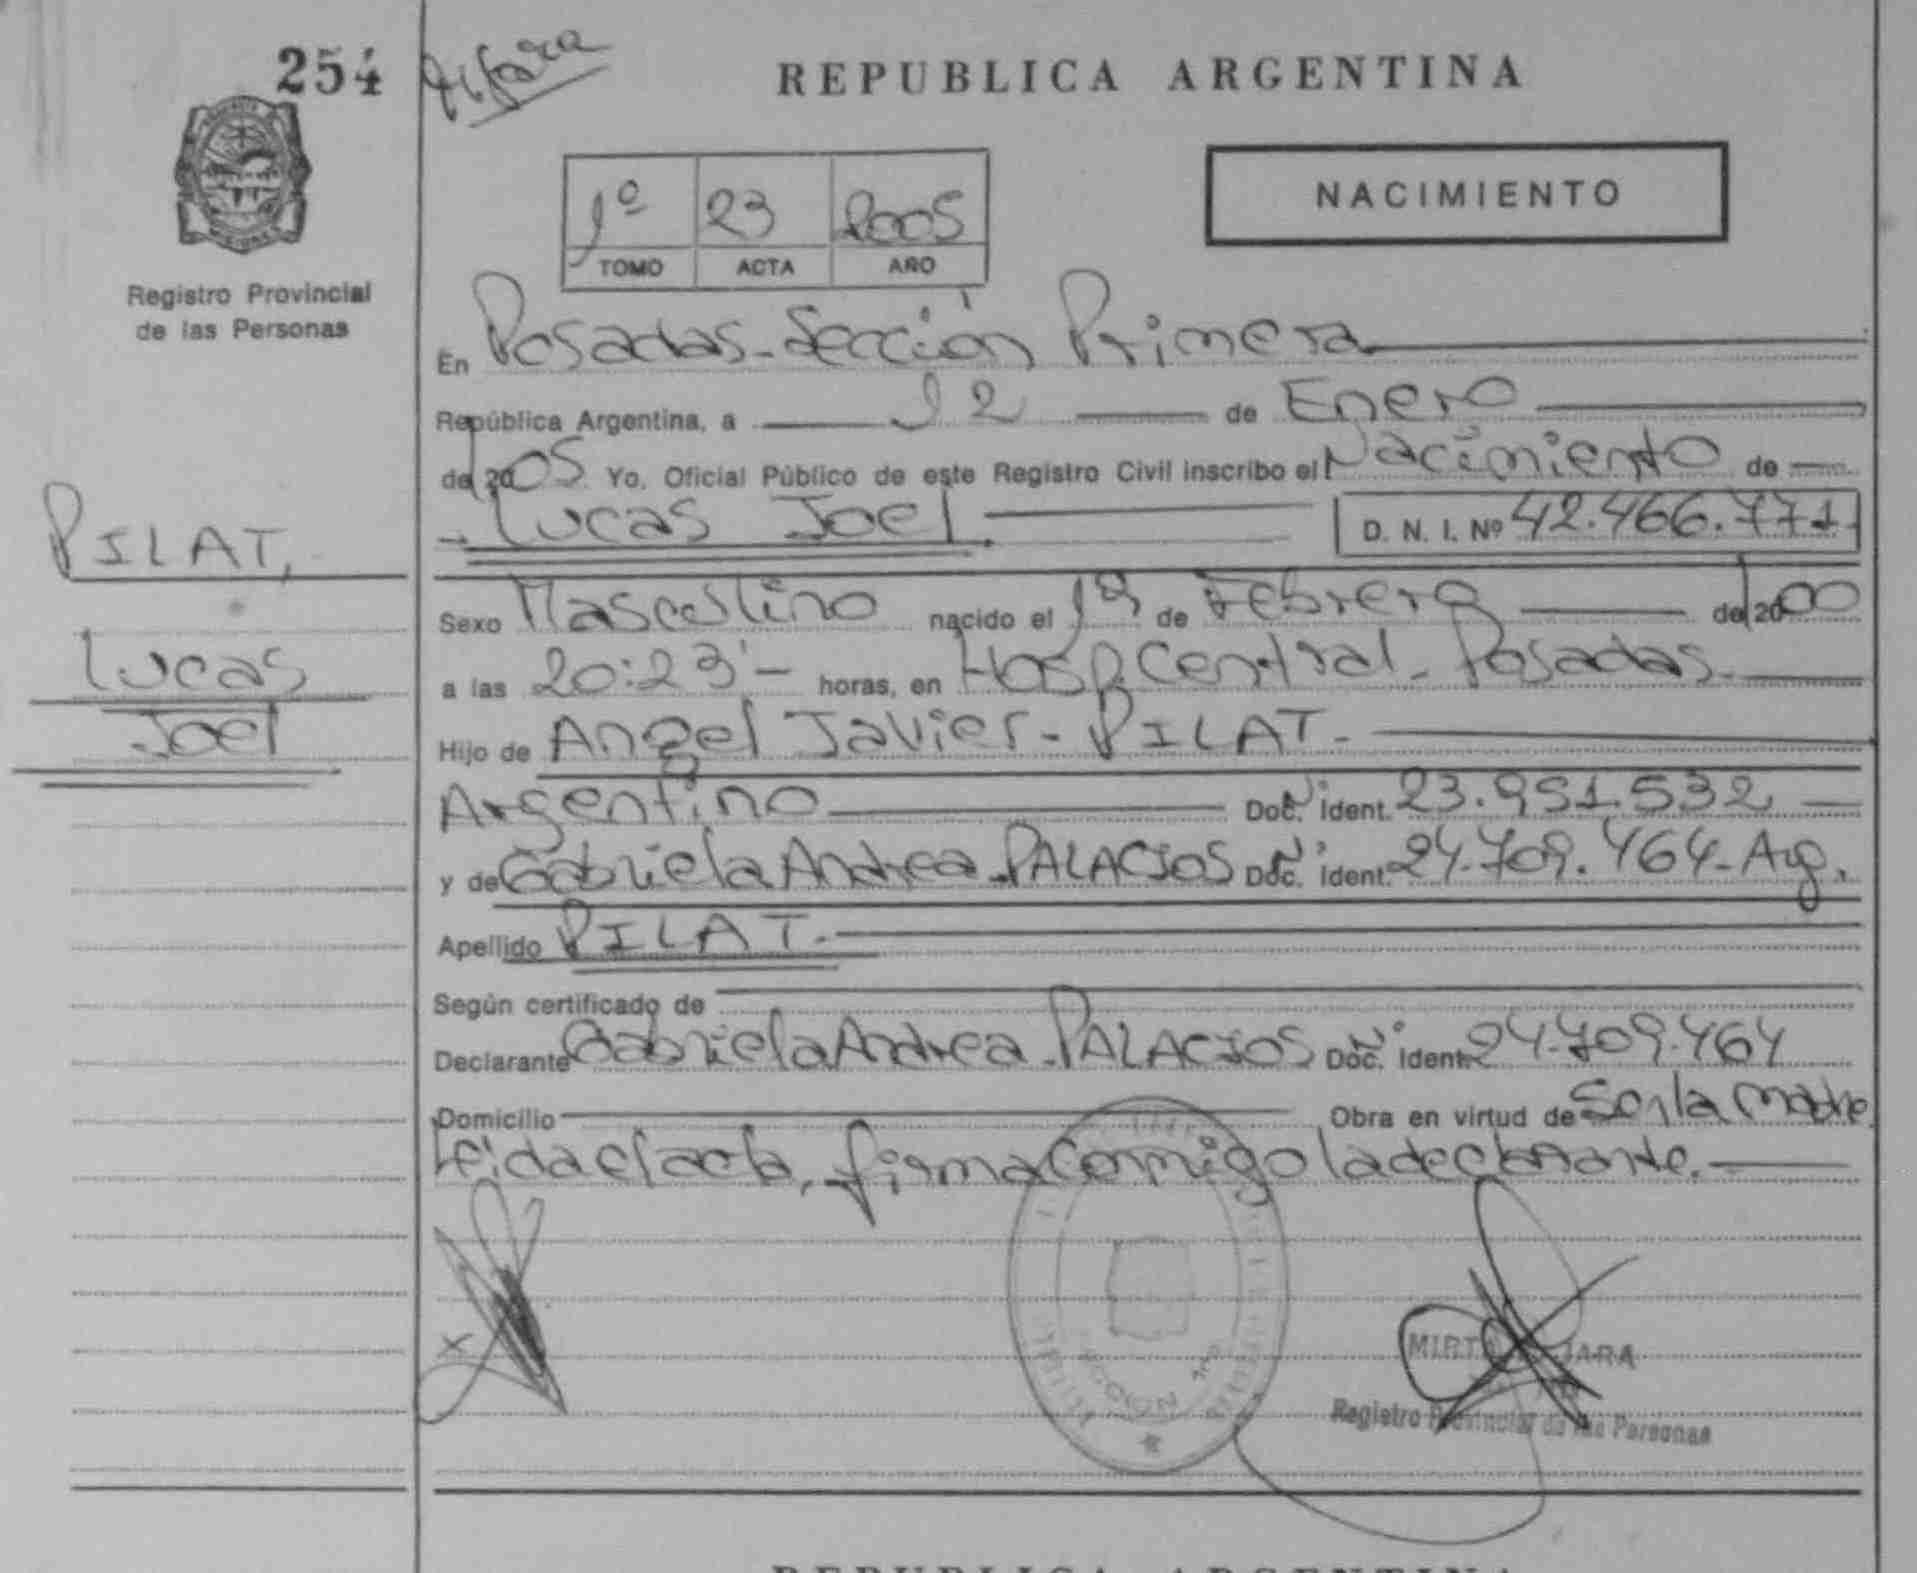 254
REPUBLICA ARGENTINA
NACIMIENTO
1º 23 2005
TOMO ACTA AÑO
Registro Provincial
de las Personas
En Posadas-Sección Primera
República Argentina, a 12 de Enero
del 2005 Yo, Oficial Público de este Registro Civil inscribo el Nacimiento de
Lucas Joel D. N. I. Nº 42.466.771
PILAT,
Lucas
Joel
Sexo Masculino nacido el 1º de Febrero del 2000
a las 20:23'- horas, en Hosp. Central- Posadas-
Hijo de Angel Javier-PILAT-
Argentino Doc. Nº Ident. 23.951.532
y de Gabriela Andrea-PALACIOS Doc. Nº Ident. 24.709.464-Arg.
Apellido PILAT.-
Según certificado de
Declarante Gabriela Andrea-PALACIOS Doc. Nº Ident. 24.709.464
Domicilio Obra en virtud de Ser la madre
Leida el acta, firma conmigo la declarante.
x
SECCION 1ra
MIRTA JARA
Registro Provincial de las Personas
REPUBLICA ARGENTINA